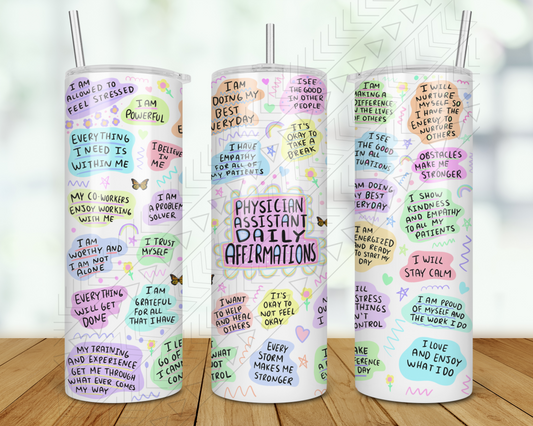 I AM
ALLOWED TO
FEEL STRESSED
I AM
POWERFUL
EVERYTHING
I NEED IS
WITHIN ME
I BELIEVE
IN
ME
MY CO-WORKERS
ENJOY WORKING
WITH ME
I AM
A PROBLEM
SOLVER
I AM
WORTHY AND
I AM NOT
ALONE
I TRUST
MYSELF
EVERYTHING
WILL GET
DONE
I AM
GRATEFUL
FOR ALL
THAT I HAVE
MY TRAINING
AND EXPERIENCE
GET ME THROUGH
WHAT EVER COMES
MY WAY
I LE
GO OF
I CAN
CON
I AM
DOING MY
BEST
EVERYDAY
I SEE
THE GOOD
IN OTHER
PEOPLE
I HAVE
EMPATHY
FOR ALL OF
MY PATIENTS
IT'S
OKAY TO
TAKE A
BREAK
PHYSICIAN
ASSISTANT
DAILY
AFFIRMATIONS
I WANT
TO HELP
AND HEAL
OTHERS
IT'S
OKAY TO
NOT FEEL
OKAY
EVERY
STORM
MAKES ME
STRONGER
I AM
MAKING A
DIFFERENCE
IN THE LIVES
OF OTHERS
I WILL
NURTURE
MYSELF SO
I HAVE THE
ENERGY TO
NURTURE
OTHERS
I SEE
THE GOOD
IN ALL
SITUATIONS
OBSTACLES
MAKE ME
STRONGER
I AM DOING
MY BEST
EVERYDAY
I SHOW
KINDNESS
AND EMPATHY
TO ALL MY
PATIENTS
I AM
ENERGIZED
AND READY
TO START MY
DAY
I WILL
STAY CALM
WILL
STRESS
THINGS
N'T
CONTROL
I AM PROUD
OF MYSELF AND
THE WORK I DO
I LOVE
AND ENJOY
WHAT I DO